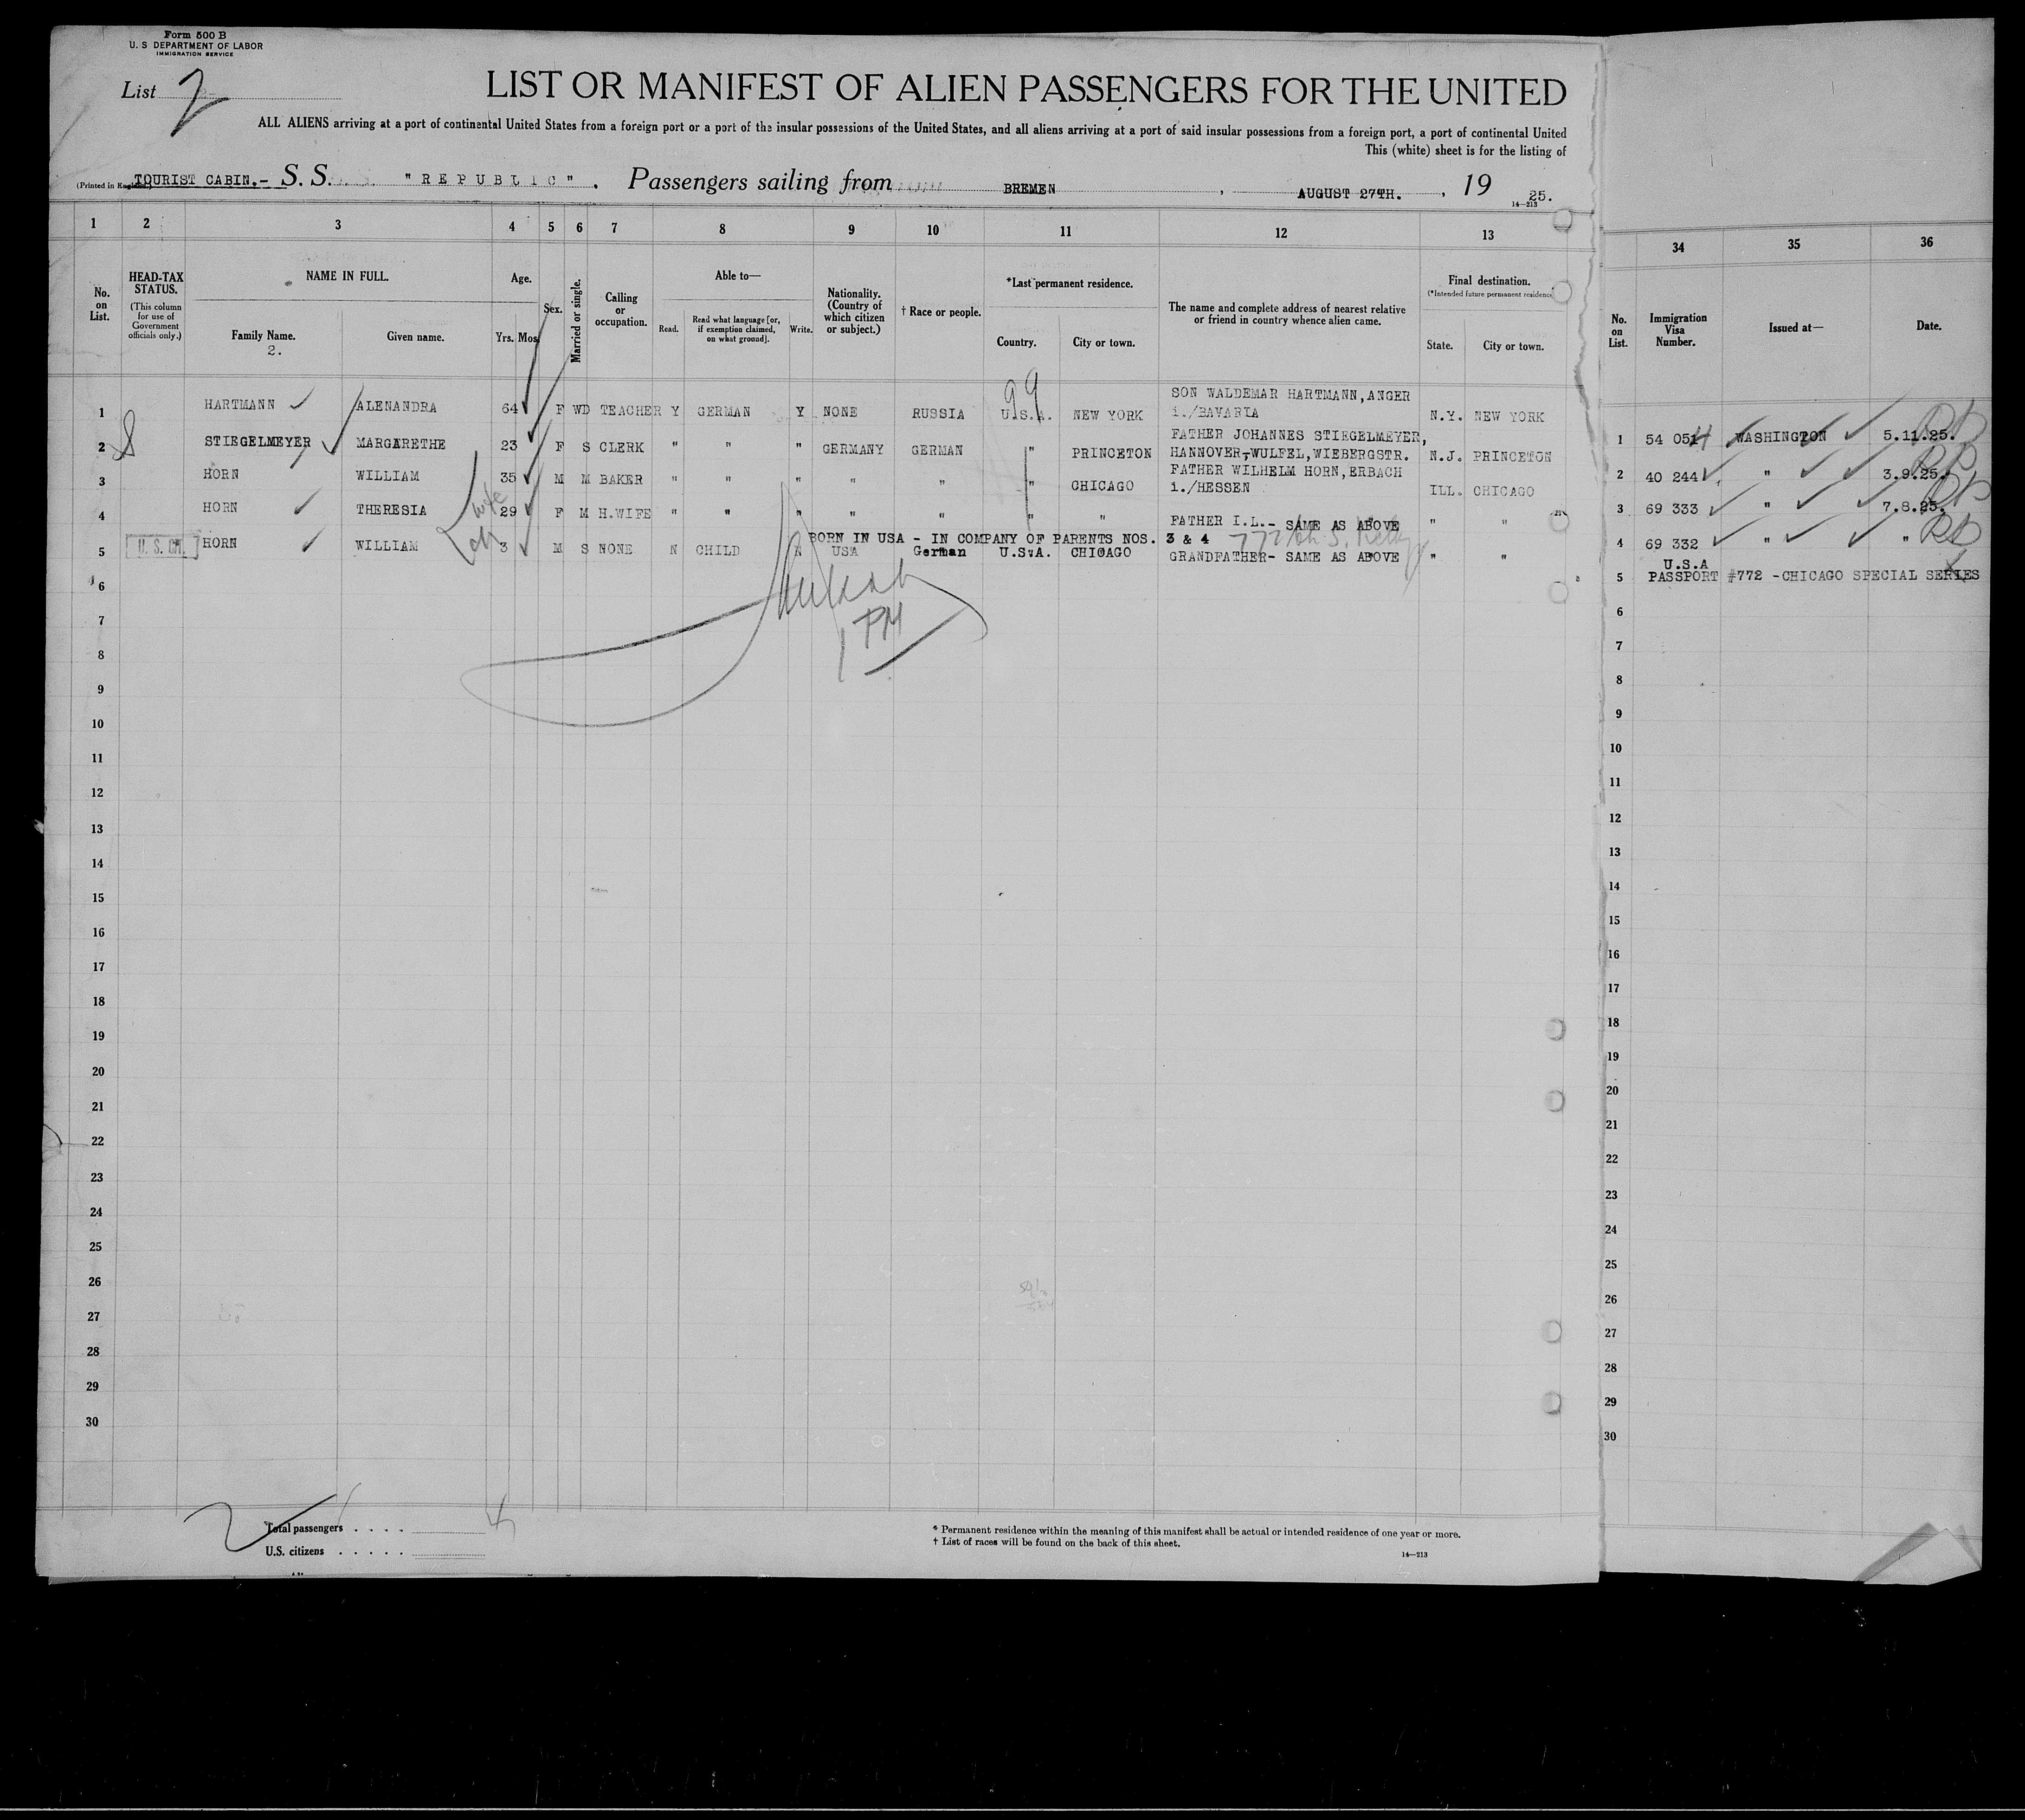 Form 500 B
U. S DEPARTMENT OF LABOR
IMMIGRATION SERVICE
List 2
LIST OR MANIFEST OF ALIEN PASSENGERS FOR THE UNITED
ALL ALIENS arriving at a port of continental United States from a foreign port or a port of the insular possessions of the United States, and all aliens arriving at a port of said insular possessions from a foreign port, a port of continental United
This (white) sheet is for the listing of
(Printed in England.) TOURIST CABIN.- S. S. "REPUBLIC". Passengers sailing from BREMEN, AUGUST 27TH., 19 25.
14—213
1 2 3 4 5 6 7 8 9 10 11 12 13 34 35 36
No. on List.
HEAD-TAX STATUS. (This column for use of Government officials only.)
NAME IN FULL. Family Name. 2. Given name.
Age. Yrs. Mos.
Sex.
Married or single.
Calling or occupation.
Able to— Read. Read what language [or, if exemption claimed, on what ground]. Write.
Nationality. (Country of which citizen or subject.)
† Race or people.
*Last permanent residence. Country. City or town.
The name and complete address of nearest relative or friend in country whence alien came.
Final destination. (*Intended future permanent residence) State. City or town.
No. on List. Immigration Visa Number. Issued at— Date.
99
1 HARTMANN ALENANDRA 64 F WD TEACHER Y GERMAN Y NONE RUSSIA U.S.A. NEW YORK SON WALDEMAR HARTMANN,ANGER i./BAVARIA N.Y. NEW YORK
2 STIEGELMEYER MARGARETHE 23 F S CLERK " " " GERMANY GERMAN " PRINCETON FATHER JOHANNES STIEGELMEYER, HANNOVER-WULFEL,WIEBERGSTR. N.J. PRINCETON
3 HORN WILLIAM 35 M M BAKER " " " " " " CHICAGO FATHER WILHELM HORN,ERBACH i./HESSEN ILL. CHICAGO
4 HORN THERESIA wife 29 F M H.WIFE " " " " " " " FATHER I.L.- SAME AS ABOVE " "
BORN IN USA - IN COMPANY OF PARENTS NOS. 3 & 4
5 U. S. CH. HORN WILLIAM ch 3 M S NONE N CHILD N USA German U.S.A. CHICAGO GRANDFATHER- SAME AS ABOVE " "
1 54 051 4 WASHINGTON 5.11.25.
2 40 244 " 3.9.25.
3 69 333 " 7.8.25.
4 69 332 " "
U.S.A
5 PASSPORT #772 -CHICAGO SPECIAL SERIES
1 PM
6 6
7 7
8 8
9 9
10 10
11 11
12 12
13 13
14 14
15 15
16 16
17 17
18 18
19 19
20 20
21 21
22 22
23 23
24 24
25 25
26 26
27 27
28 28
29 29
30 30
Total passengers . . . .
U.S. citizens . . . . .
* Permanent residence within the meaning of this manifest shall be actual or intended residence of one year or more.
† List of races will be found on the back of this sheet.
14—213